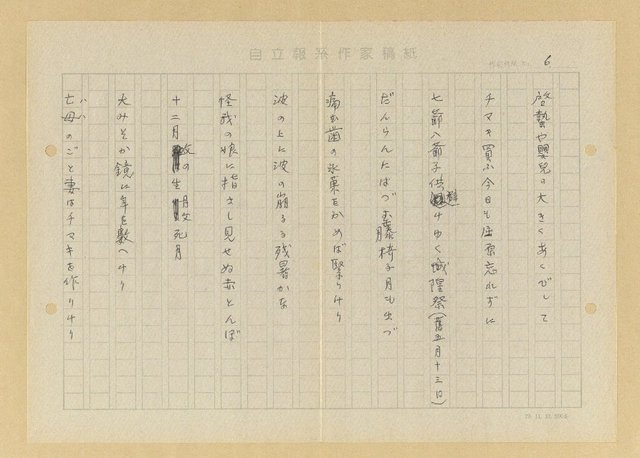 自立報系作家稿紙
6
啓蟄や嬰児は大きくあくびして
チマキ買ふ今日も屈原忘れずに
七爺八爺子供群けゆく城隍祭(舊五月十三日)
だんらんにはづむ藤椅子月も出づ
痛む歯の氷菓をかめば緊りけり
波の上に波の崩るる残暑かな
怪我の娘に指さし見せぬ赤とんぼ
十二月父の生月父死月
大みそか鏡に年を數へけり
亡母のごと妻はチマキを作りけり
ハハ